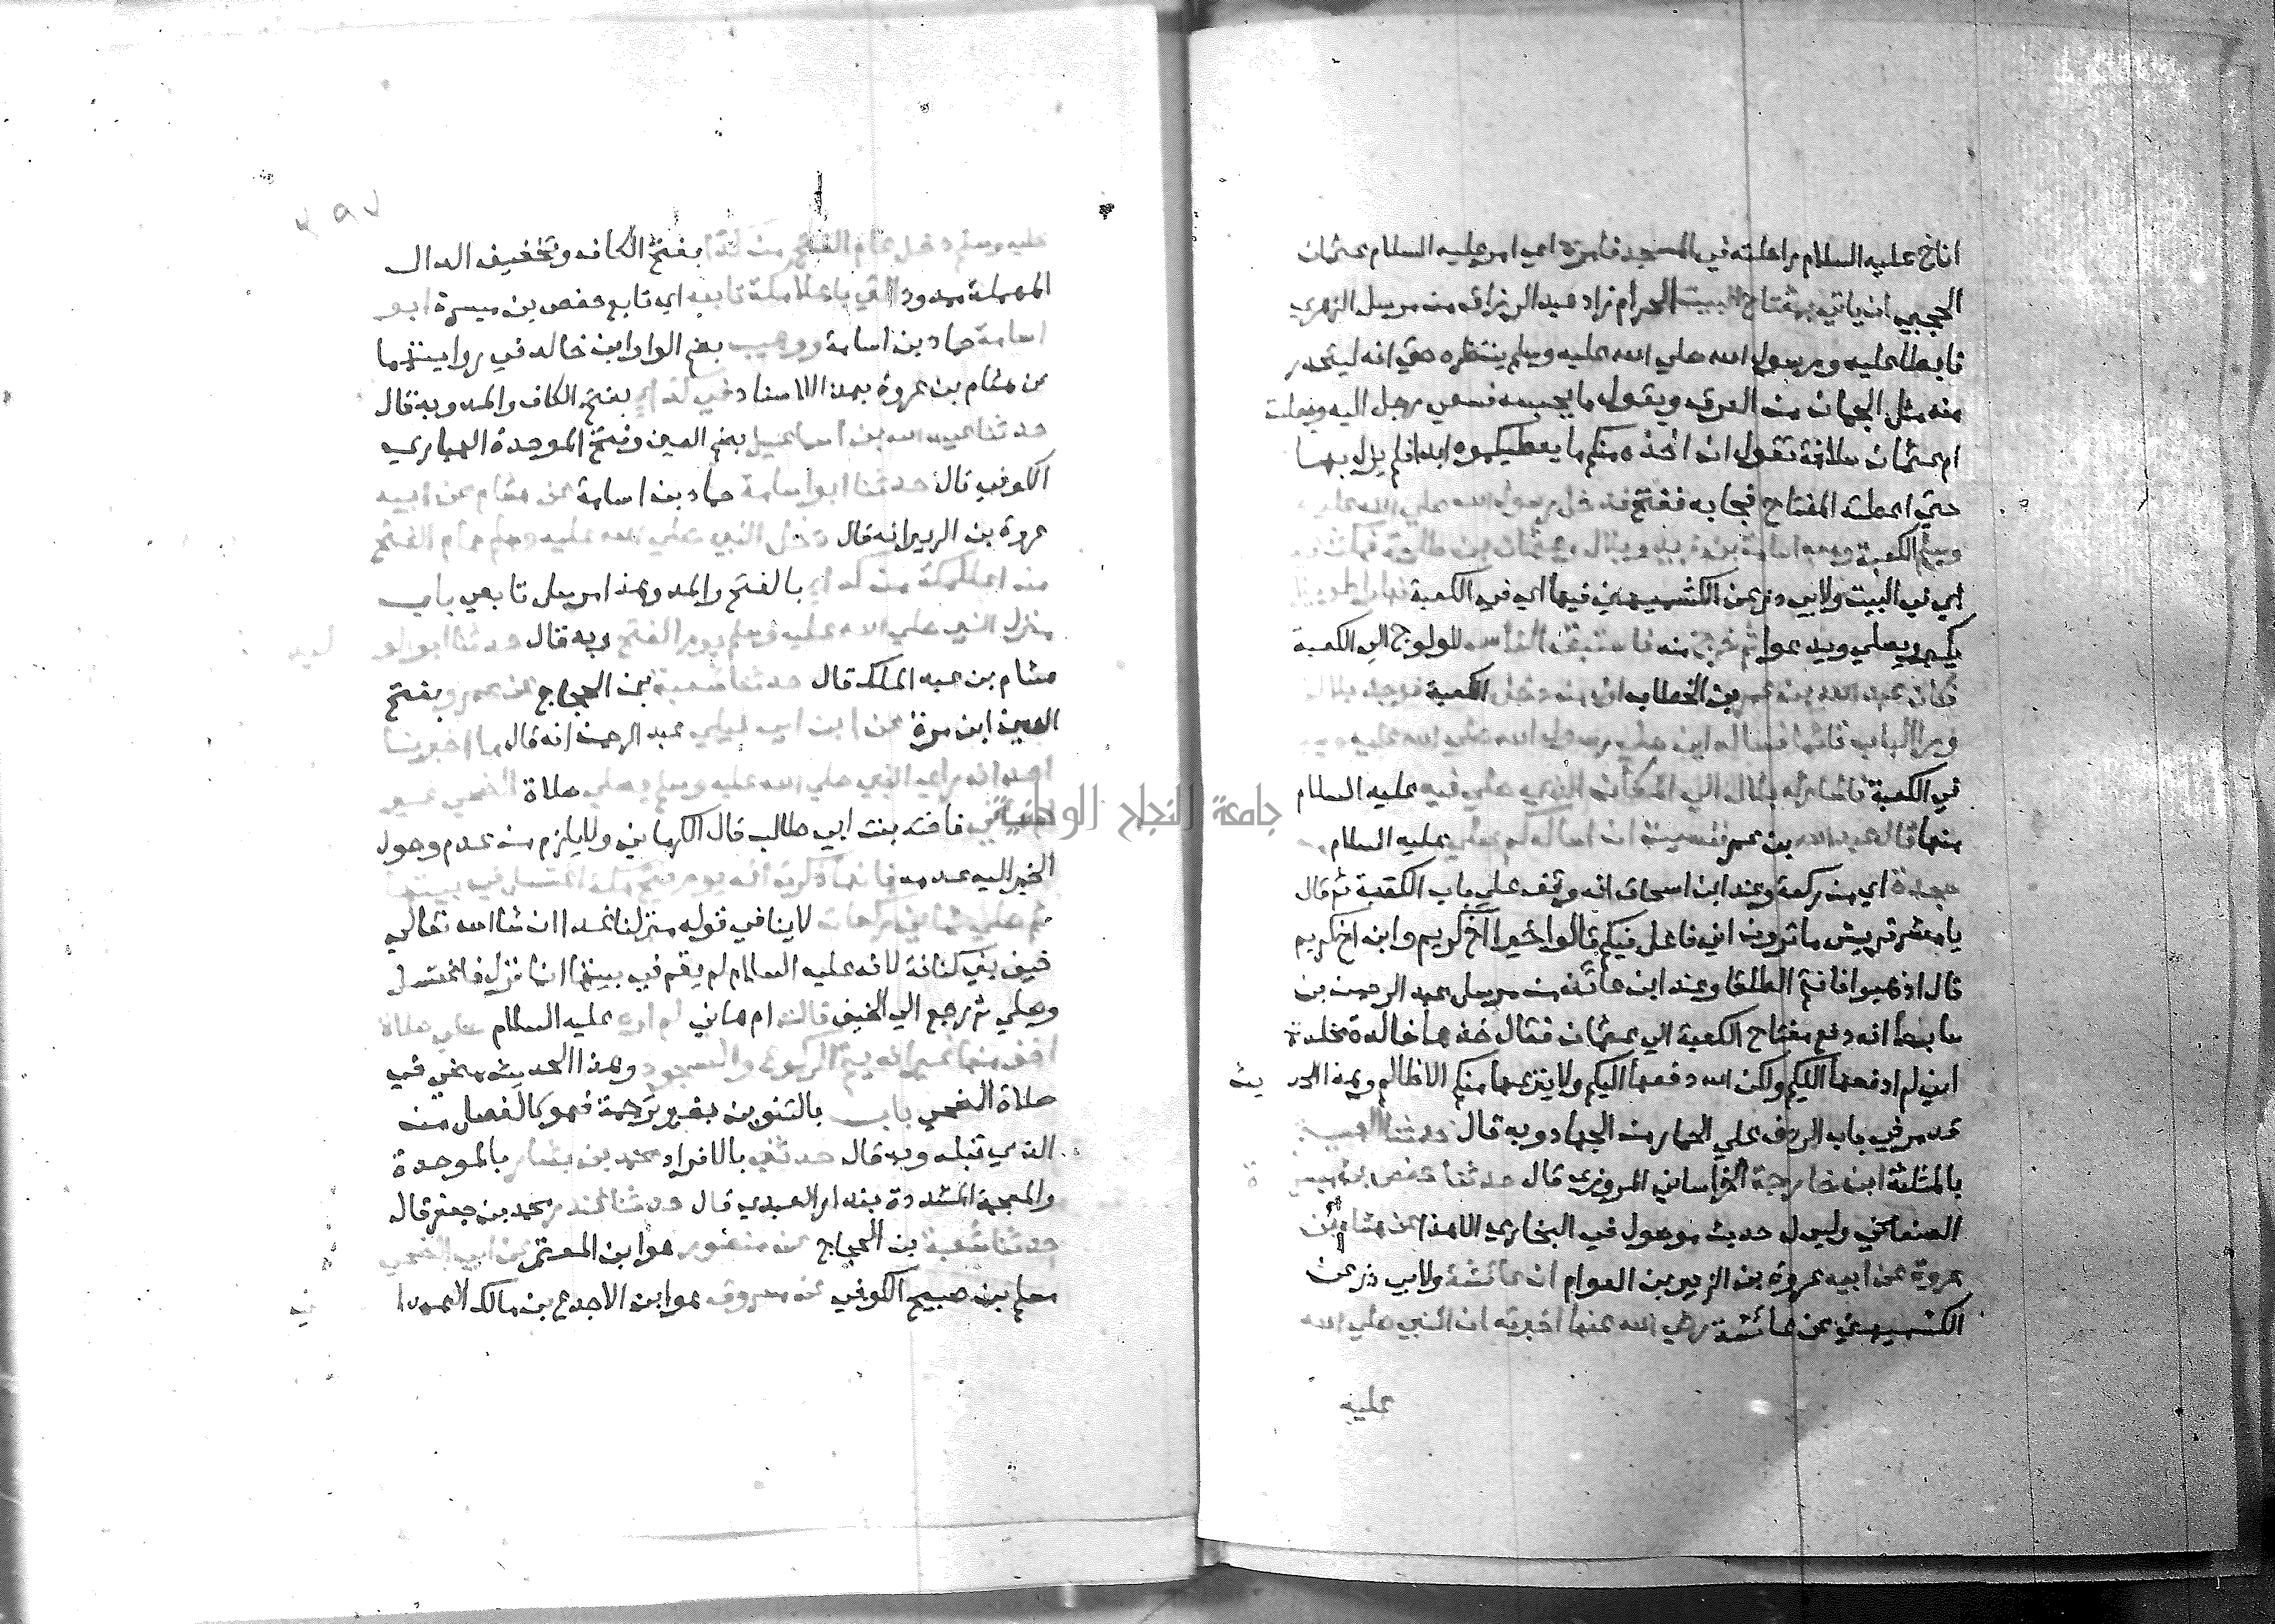 اناخ عليه السلام راحلته في المسجد فامره اي امر عليه السلام عثمان
الحجبي ان ياتي بمفتاح البيت الحرام زاد عبد الرزاق من مرسل الزهري
فابطا عليه ورسول الله صلي الله عليه وسلم ينتظره حتي انه ليتحدر
منه مثل الجمان من العرق ويقول ما يحبسه فسعي رجل اليه وجعلت
ام عثمان سلافة تقول ان اخذه منكم ما يعطيكموه ابدا فلم يزل بها
حتي اعطته المفتاح فجا به ففتح فدخل رسول الله صلي الله عليه
وسلم الكعبة ومعه اسامة بن زيد وبلال وعثمان بن طلحة فمكث فيه
اي في البيت ولابي ذر عن الكشميهني فيها اي في الكعبة نهارا طويلا
يكبر ويصلي ويدعوا ثم خرج منه فاستبق الناس للولوج الي الكعبة
فكان عبد الله بن عمر بن الخطاب اول من دخل الكعبة فوجد بلالا
ورا الباب قائما فساله اين صلي رسول الله صلي الله عليه وسلم
في الكعبة فاشار له بلال الي المكان الذي صلي فيه عليه السلام
منها قال عبد الله بن عمر فنسيت ان اساله كم صلي عليه السلام من
سجدة اي من ركعة وعند ابن اسحاق انه وقف علي باب الكعبة ثم قال
يا معشر قريش ما ترون اني فاعل فيكم قالوا خيرا اخ كريم وابن اخ كريم
قال اذهبوا فانتم الطلقا وعند ابن عائذ من مرسل عبد الرحمن بن
سابط انه دفع مفتاح الكعبة الي عثمان فقال خذها خالدة مخلدة
اني لم ادفعها اليكم ولكن الله دفعها اليكم ولا ينزعها منكم الا ظالم وهذا الحديث
قد مر في باب الردف علي الحمار من الجهاد وبه قال حدثنا الهيثم
بالمثلثة ابن خارجة الخراساني المروزي قال حدثنا حفص بن ميسرة
الصنعاني وليس له حديث موصول في البخاري الا هذا عن هشام بن
عروة عن ابيه عروة بن الزبير بن العوام ان عائشة ولابي ذر عن
الكشميهني عن عائشة رضي الله عنها اخبرته ان النبي صلي الله
عليه
عليه وسلم دخل عام الفتح من كدا بفتح الكاف وتخفيف الدال
المهملة ممدود التي باعلا مكة تابعه اي تابع حفص بن ميسرة ابو
اسامة حماد بن اسامة ووهيب بضم الواو ابن خالد في روايتهما
عن هشام بن عروة بهذا الاسناد في كداي بفتح الكاف والمد وبه قال
حدثنا عبيد الله بن اسماعيل بضم العين وفتح الموحدة الهباري
الكوفي قال حدثنا ابو اسامة حماد بن اسامة عن هشام عن ابيه
عروة بن الزبير انه قال دخل النبي صلي الله عليه وسلم عام الفتح
من اعلا مكة من كداي بالفتح والمد وهذا مرسل تابعي باب
منزل النبي صلي الله عليه وسلم يوم الفتح وبه قال حدثنا ابو الوليد
هشام بن عبد الملك قال حدثنا شعبة بن الحجاج عن عمرو بفتح
العين ابن مرة عن ابن ابي ليلي عبد الرحمن انه قال ما اخبرنا
احد انه راي النبي صلي الله عليه وسلم يصلي صلاة الضحي غير
ام هاني فاختة بنت ابي طالب قال الكرماني ولا يلزم من عدم وصول
الخبر اليه عدمه فانها ذكرت انه يوم فتح مكة اغتسل في بيتها
ثم صلي ثماني ركعات لا ينافي قوله منزلنا غدا ان شا الله تعالي
خيف بني كنانة لانه عليه السلام لم يقم في بيتها انما نزل فاغتسل
وصلي ثم رجع الي الخيف قالت ام هاني لم اره عليه السلام صلي صلاة
اخف منها غير انه يتم الركوع والسجود وهذا الحديث مضي في
صلاة الضحي باب بالتنوين بغير ترجمة فهو كالفصل من
الذي قبله وبه قال حدثني بالافراد محمد بن بشار بالموحدة
والمعجمة المشددة بندار العبدي قال حدثنا غندر محمد بن جعفر قال
حدثنا شعبة بن الحجاج عن منصور هو ابن المعتمر عن ابي الضحي
مسلم بن صبيح الكوفي عن مسروق هو ابن الاجدع بن مالك الهمداني
جامعة النجاح الوطنية